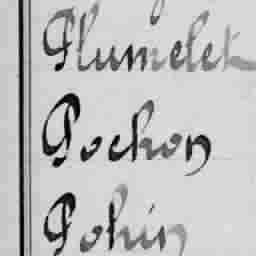 Plumelet
Pochon
Pohin